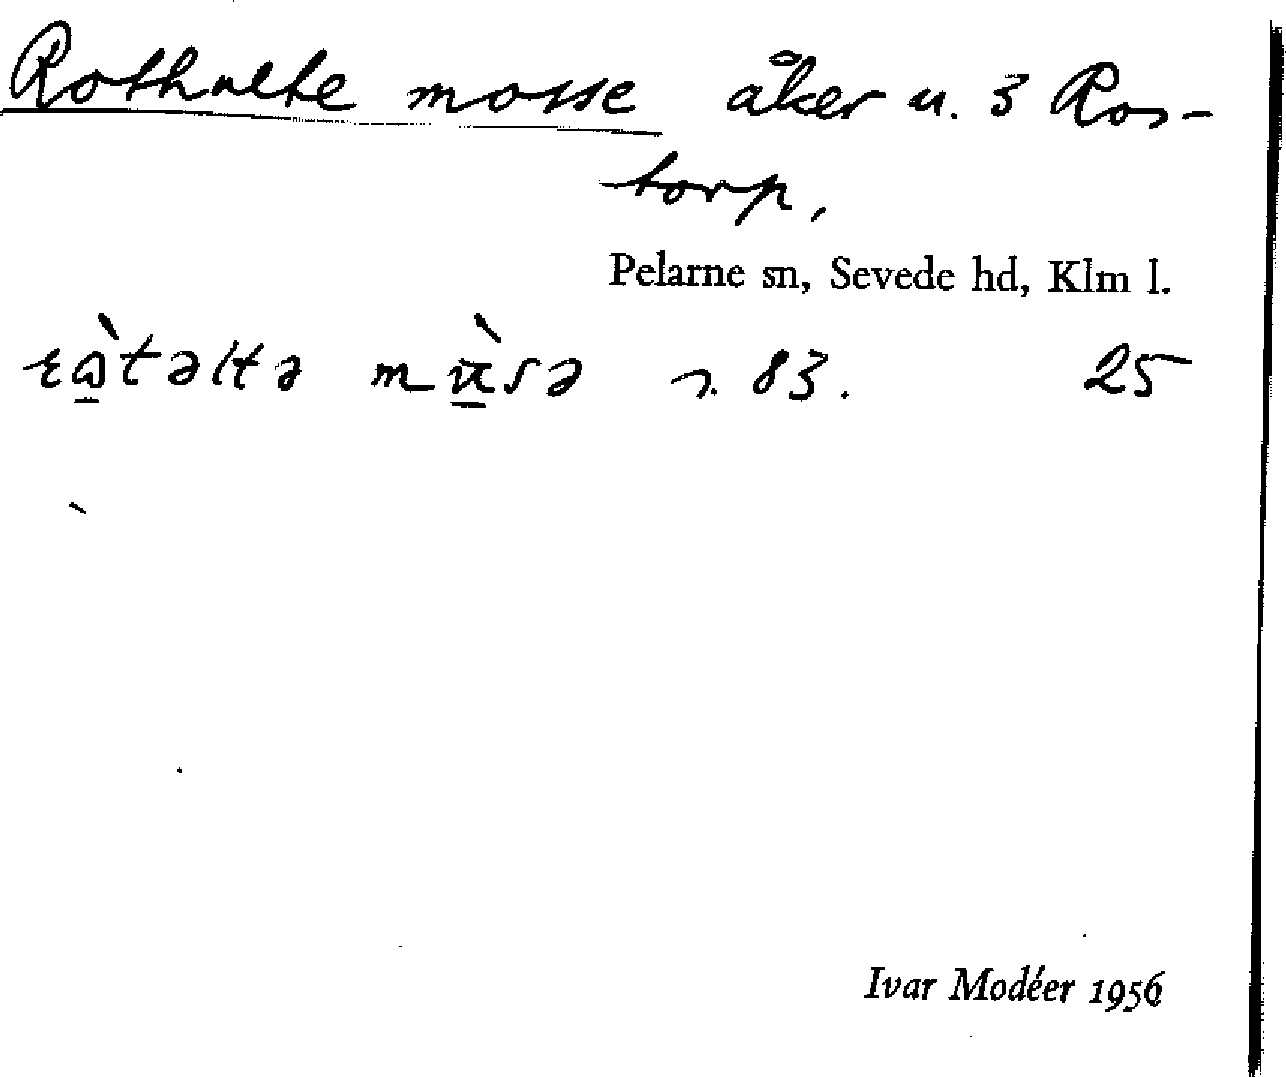 Rothulte mosse åker u. 3 Ros-
torp,
Pelarne sn, Sevede hd, Klm l.
83. 25
Ivar Modéer 1956